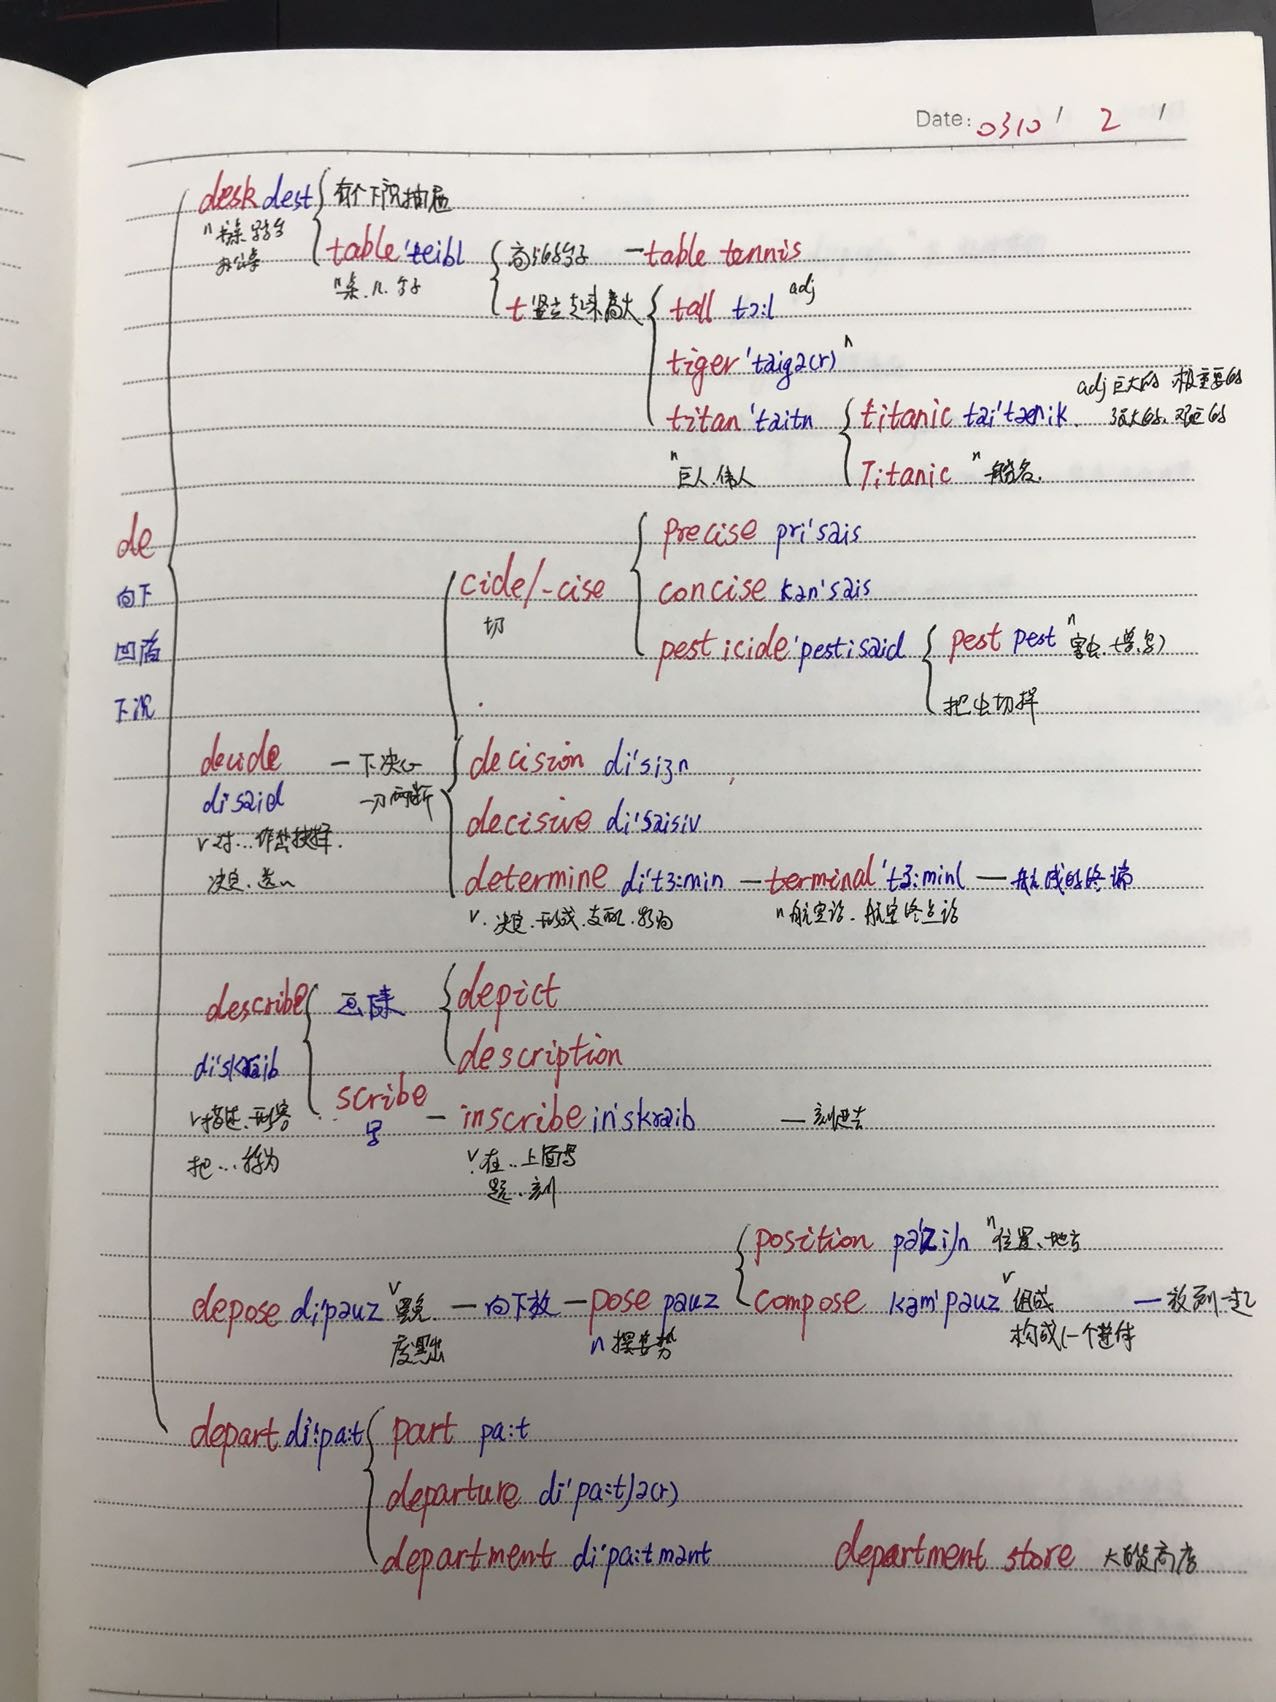 Date: 0310 / 2 /
desk dest 有个下沉抽屉
n 书桌 写字台
办公桌
table 'teibl 高的台子 — table tennis
n 桌.几.台子
t 竖立起来高大 tall tɔ:l adj
tiger 'taigə(r) n
titan 'taitn titanic tai'tænik adj 巨大的 极重要的
强大的.艰巨的
n 巨人.伟人 Titanic n 船名.
de
向下
凹陷
下沉
cide/-cise precise pri'sais
切 concise kən'sais
pesticide 'pestisaid pest pest n 害虫.
把虫切掉
decide — 下决心 decision di'siʒn
disaid 一刀两断 decisive di'saisiv
v 对...作出抉择.
决定.选 determine di't3:min — terminal 't3:minl — 航线的终端
v. 决定.形成.支配.影响 n 航空站.航空终点站
describe 画像 depict
di'skraib description
v 描述.形容 scribe 写 — inscribe in'skraib — 刻进去
把...称为 v 在...上面写
题.刻
position pə'ziʃn n 位置.地方
depose di'pəuz v 罢免. — 向下放 — pose pəuz compose kəm'pəuz v 组成 — 放到一起
废黜 n 摆姿势 构成(一个整体
depart di'pa:t part pa:t
departure di'pa:tʃə(r)
department di'pa:tmənt department store 大百货商店